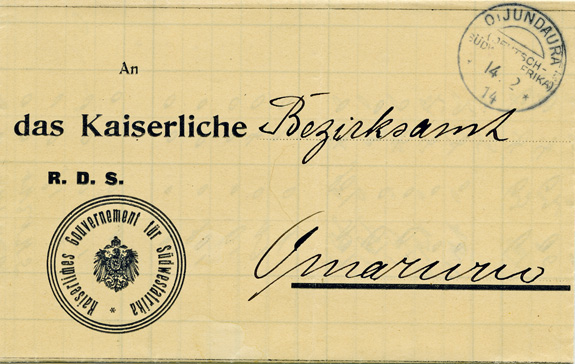 OTJUNDAURA
(DEUTSCH-
SÜDWESTAFRIKA)
14 2
14
An
das Kaiserliche Bezirksamt
R. D. S.
Kaiserliches Gouvernement für Südwestafrika
Omaruru